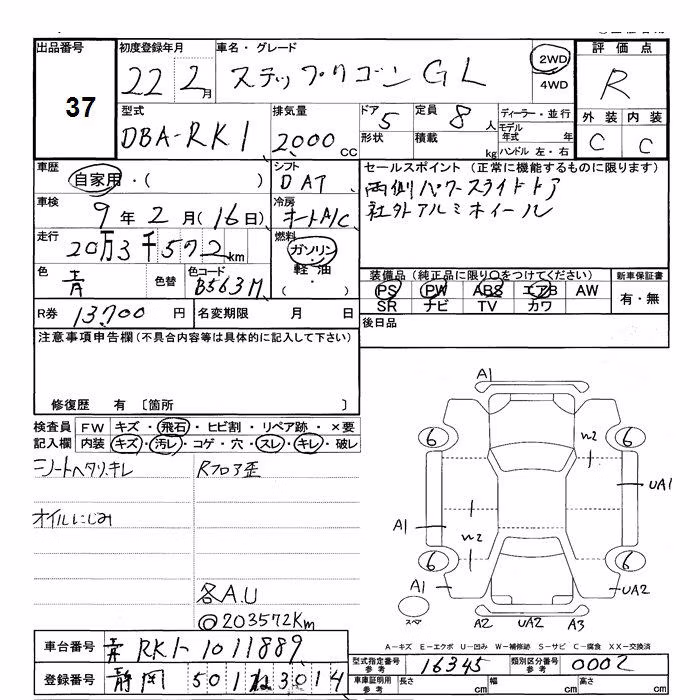 出品番号 37
初度登録年月 22 2月
車名・グレード ステップワゴン GL
2WD
4WD
評価点 R
外装 内装
C C
型式 DBA-RK1
排気量 2000 cc
ドア 5
形状
定員 8人
積載 kg
ディーラー・並行
モデル年式 年
ハンドル 左・右
車歴 自家用・( )
シフト DAT
車検 9年2月(16日)
冷房 オートA/C
走行 20万3千572km
燃料 ガソリン・軽油・( )
色 青 色替
色コード B563M
R券 13700円
名変期限 月 日
セールスポイント(正常に機能するものに限ります)
両側パワースライドドア
社外アルミホイール
装備品(純正品に限り○をつけてください)
PS PW ABS エアB AW
SR ナビ TV カワ
新車保証書
有・無
後日品
注意事項申告欄(不具合内容等は具体的に記入して下さい)
修復歴 有 〔箇所 〕
検査員記入欄
FW キズ・飛石・ヒビ割・リペア跡・×要
内装 キズ・汚レ・コゲ・穴・スレ・キレ・破レ
シートヘタリ.キレ
Rフロア歪
オイルにじみ
各A.U
◎203572Km
A1
6 W2 6
UA1
A1
W2
6 6
A1 UA2
スペア
A2 UA2 A3
A-キズ E-エクボ U-凹み W-補修跡 S-サビ C-腐食 XX-交換済
車台番号 RK1-1011889
登録番号 静岡 501 ね 3014
型式指定番号 参考 16345
類別区分番号 参考 0002
車庫証明用 参考 長さ cm 幅 cm 高さ cm